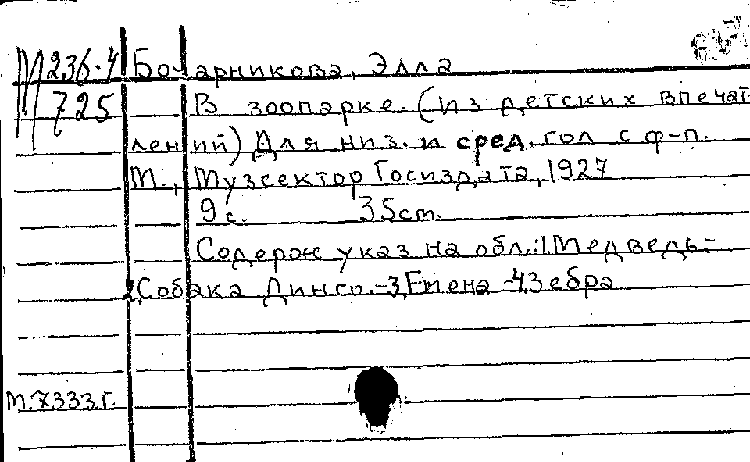 М 236-4 Бочарникова, Элла
725 В зоопарке. (Из детских впечат
лений) Для низ. и сред. гол с ф-п.
М., Музсектор Госиздата, 1927
9 с. 35 cm.
Содерж указ на обл.: 1. Медведь-
2. Собака Динго.-3. Гиена-4. Зебра
М.7333.г.